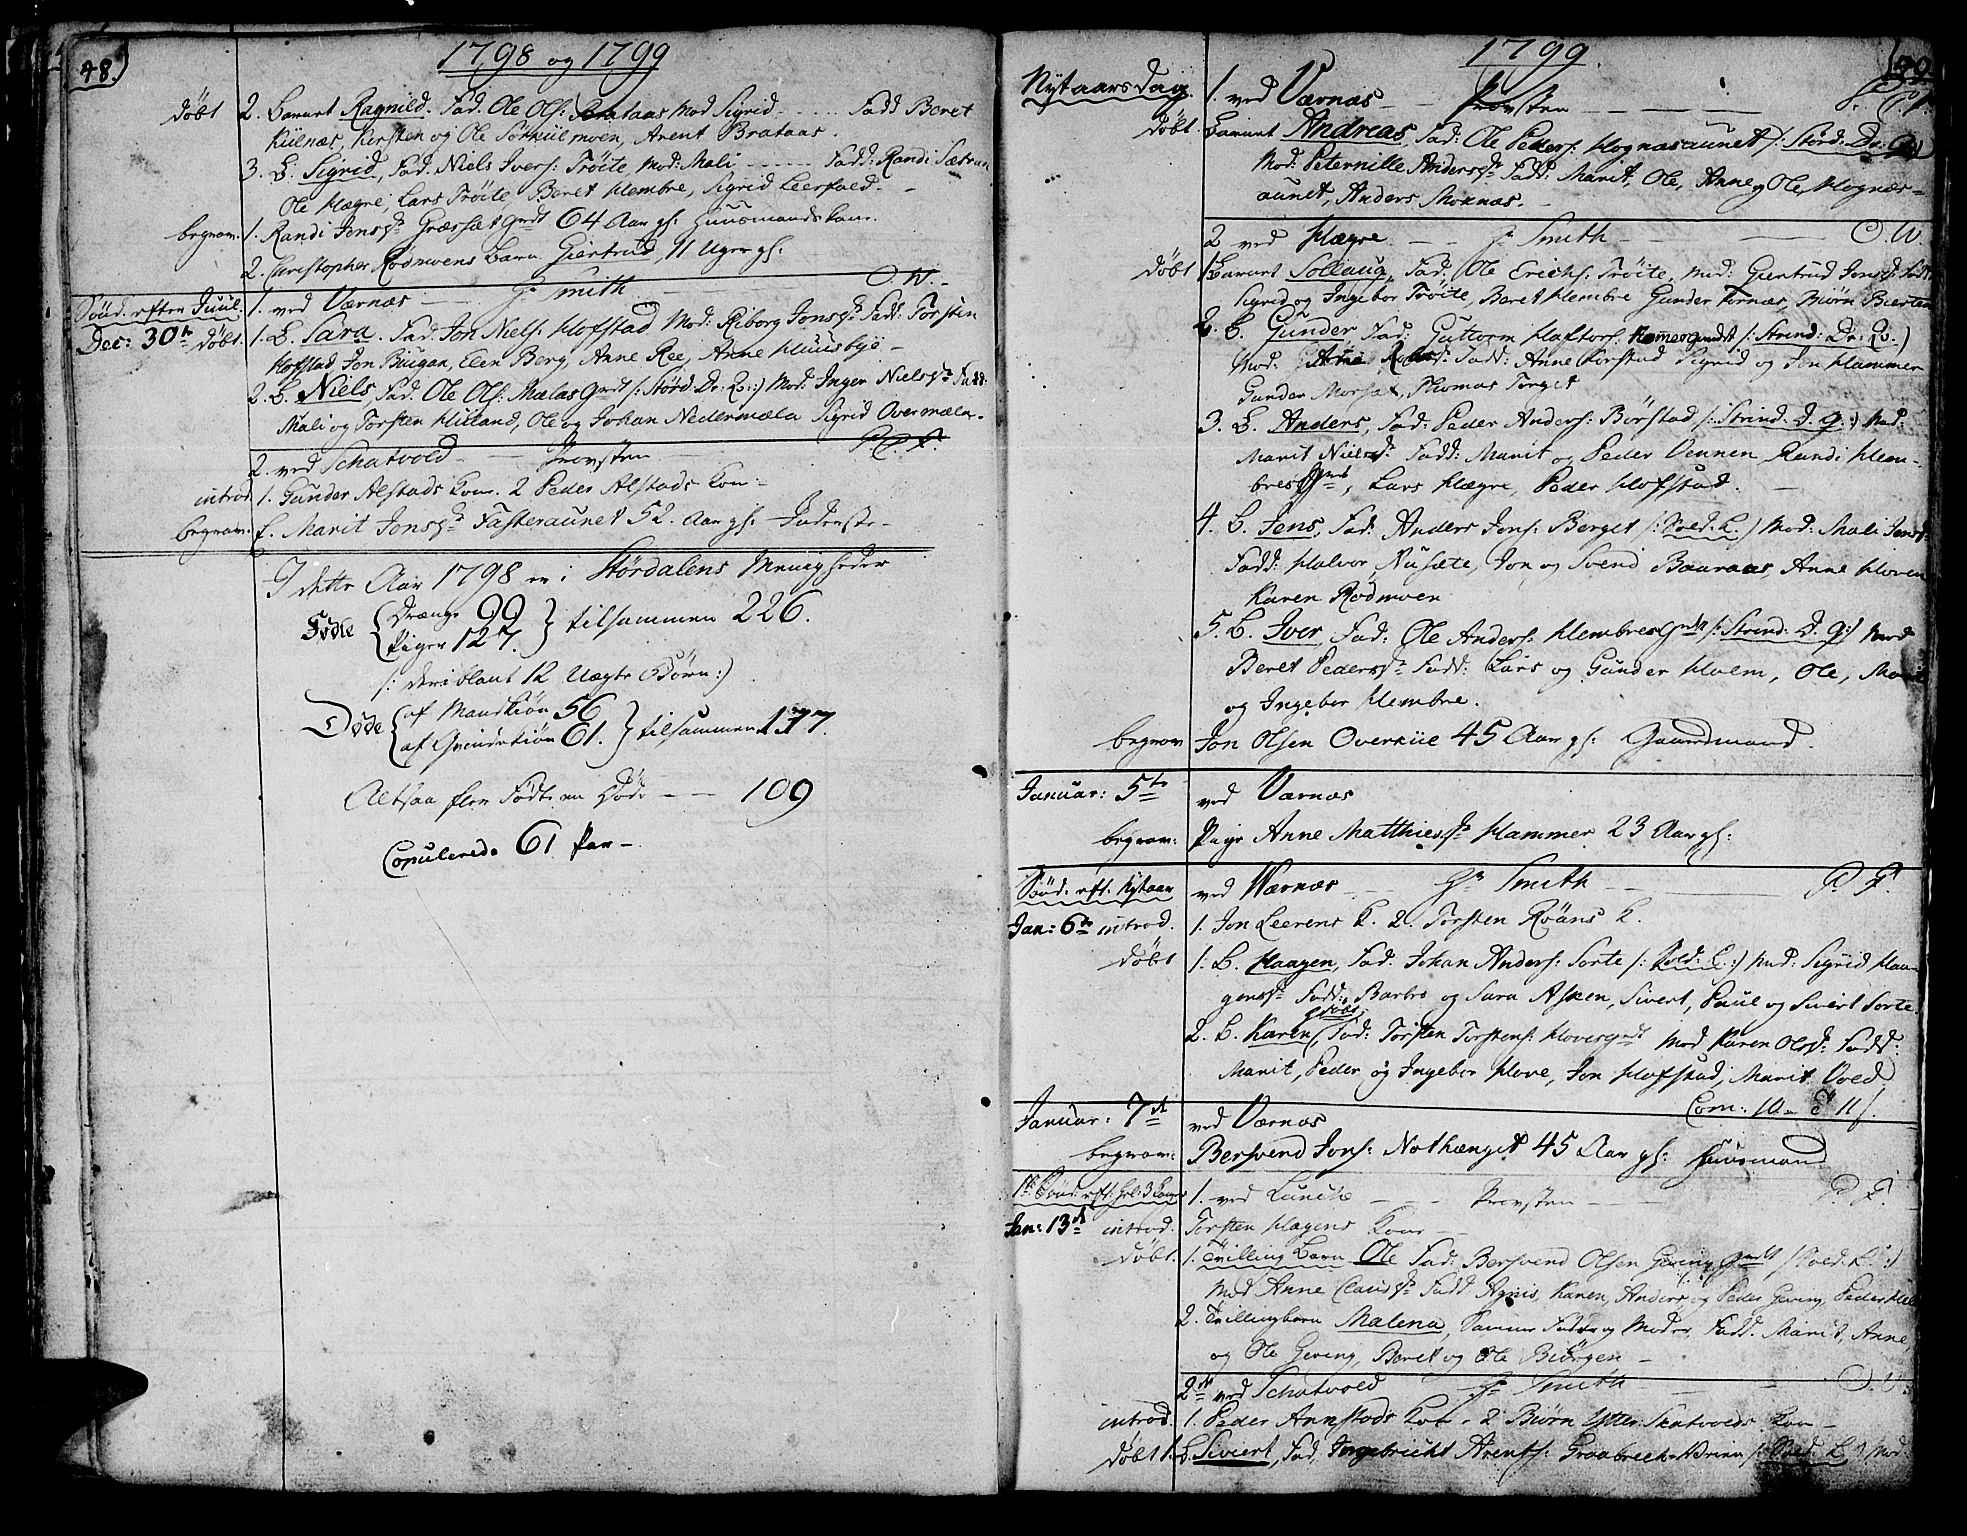 48.)
1798 og 1799
døbt 2. Barnet Ragnild. Fad. Ole Ols: Brataas Mod Sigrid ...... Fadd Beret
Kulnæs, Kirsten og Ole Torkiilmoen, Arent Brataas.
3. B. Sigrid, Fad. Niels Ivers: Trøite Mod: Mali ...... Fadd: Randi Sætran
Ole Hægre, Lars Trøite, Beret Hembre, Sigrid Leerfald.
begrav: 1. Randi Jens: Græsset 64 Aar gl: Huusmands Kone.
2. Christopher Rodmoens Barn Giertrud, 11 Uger gl:
Sønd. efter Juul. 1. ved Værnæs — Hr Smith — O. W.
Dec: 30te døbt 1. B. Sara. Fad. Jon Niels: Hofstad Mod: Riborg Jons: Fadd: Torsten
Hofstad Jon Buugan, Elen Berg, Anne Ree, Anne Huusbye
2. B. Niels Fad. Ole Ols: Mælas /: Størd. Dr: Q.:/ Mod: Inger Niels: Fadd:
Mali og Torsten Hilland, Ole og Johan Nedermæla Sigrid Overmæla.
2. ved Schatvold — Provsten — P. P. F.
introd. 1. Gunder Alstads Kone. 2 Peder Alstads Kone
begrav: Marit Jons: Fasteraunet 52. Aar gl: Inderste
I dette Aar 1798 er i Størdalens Menigheder
Fødte { Drænge 99
Piger 127. } tilsammen 226.
/: deriblant 12 Uægte Børn:/
Døde { af Mandkiøn 56
af Qvindekiøn 61. } tilsammen 117.
Altsaa fleere Fødte en Døde — 109
Copulerede 61 Par
1799.
Nytaarsdag. 1. ved Værnæs — Provsten — P. F.
døbt Barnet Andreas, Fad: Ole Peders: Hognæsaunet /: Størd: Dr: Q:/
Mod: Peternille Anders: Fadd: Marit, Ole, Anne og Ole Hognæs-
aunet, Anders Moknæs.
2 ved Hægre — Hr Smith — O. W.
døbt 1 Barnet Sollaug, Fad. Ole Erichs: Trøite, Mod: Giertrud Jons: Fadd
Sigrid og Ingebor Trøite, Beret Hembre Gunder Fornæs, Biørn Biersten
2. B. Gunder Fad: Guttorm Haftors: /: Strind: Dr: Q.:/
Mod: Fadd: Anne Forstad Sigrid og Jon Hammer
Gunder Morset, Thomas Forget
3. B. Anders, Fad: Peder Anders: Børstad /: Strind. D. q:/ Mod:
Marit Niels: Fadd: Marit og Peder Vennen Randi Hem-
bres, Lars Hægre, Peder Hofstad.
4. B. Jens, Fad: Anders Jons: Berget /: Vold. K./ Mod: Mali Jens:
Fadd: Halvor Nusæte, Jon og Svend Baaraas, Anne Hoven
Karen Rodmoen
5. B. Iver, Fad: Ole Anders: Hembres /: Strind: D. q:/ Mod
Beret Peders: Fadd: Lars og Gunder Holm, Ole, Marit
og Ingebor Hembre.
begrav Jon Olsen Overkiil 45 Aar gl: Gaardmand.
Januar: 5te ved Værnæs
begrav: Pige Anne Matthies: Hammer 23 Aar gl:
Sønd: eft: Nytaar ved Wærnæs — Hr Smith — P. F.
Jan: 6te introd. 1. Jon Leerens K. 2. Torsten Røans K.
døbt 1. B. Haagen, Fad. Johan Anders: Sorte /: Vold: C:/ Mod: Sigrid Haa-
gens: Fadd: Barbro og Sara Aspen, Sivert, Paul og Sivert Sorte.
2. B. Karen, Fad: Torsten Torstens: Hoves Mod Karen Ols: Fadd:
Marit, Peder og Ingebor Hove, Jon Hofstad, Marit Vold,
Com: 10
Januar: 7de ved Værnæs
begrav: Bersvend Jons: Nothænget 45 Aar gl: Huusmand
1te Sønd: eft: Hel: 3 Konger 1. ved Lunche — Provsten — P. F.
Jan: 13de introd. Torsten Hægens Kone
døbt. 1. Tvilling Barn Ole Fad: Bersvend Olsen Geving /: Vold. K:/
Mod Anne Claus: Fadd Agnis, Karen, Anders og Peder Geving, Peder
2. Tvillingbarn Malena, Samme Fader og Moder, Fadd. Marit, Anne
og Ole Geving, Beret og Ole Biörgen
2. ved Schatvold — Hr Smith — O. W.
introd. 1. Peder Annstads Kone. 2 Biørn Ytter Skatvolds Kone
døbt 1. B. Siviert, Fad, Ingebricht Arents: /: Vold. K:/ Mod.